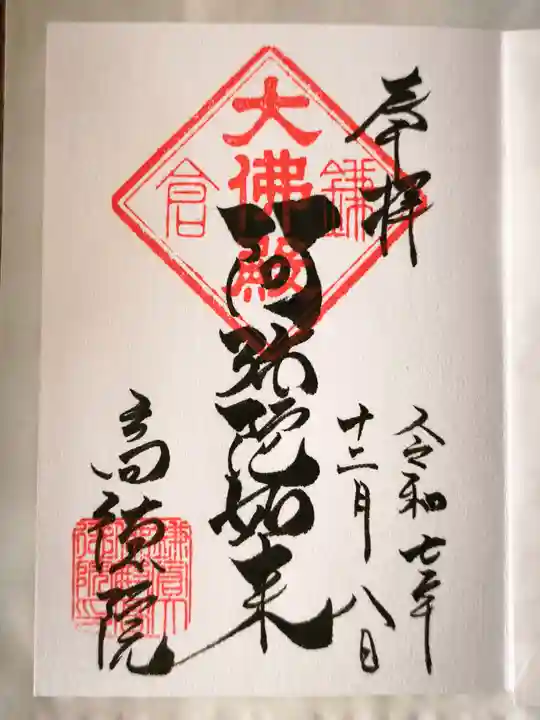 奉拝
令和七年
十二月八日
鎌倉
大佛殿
阿弥陀如来
高徳院